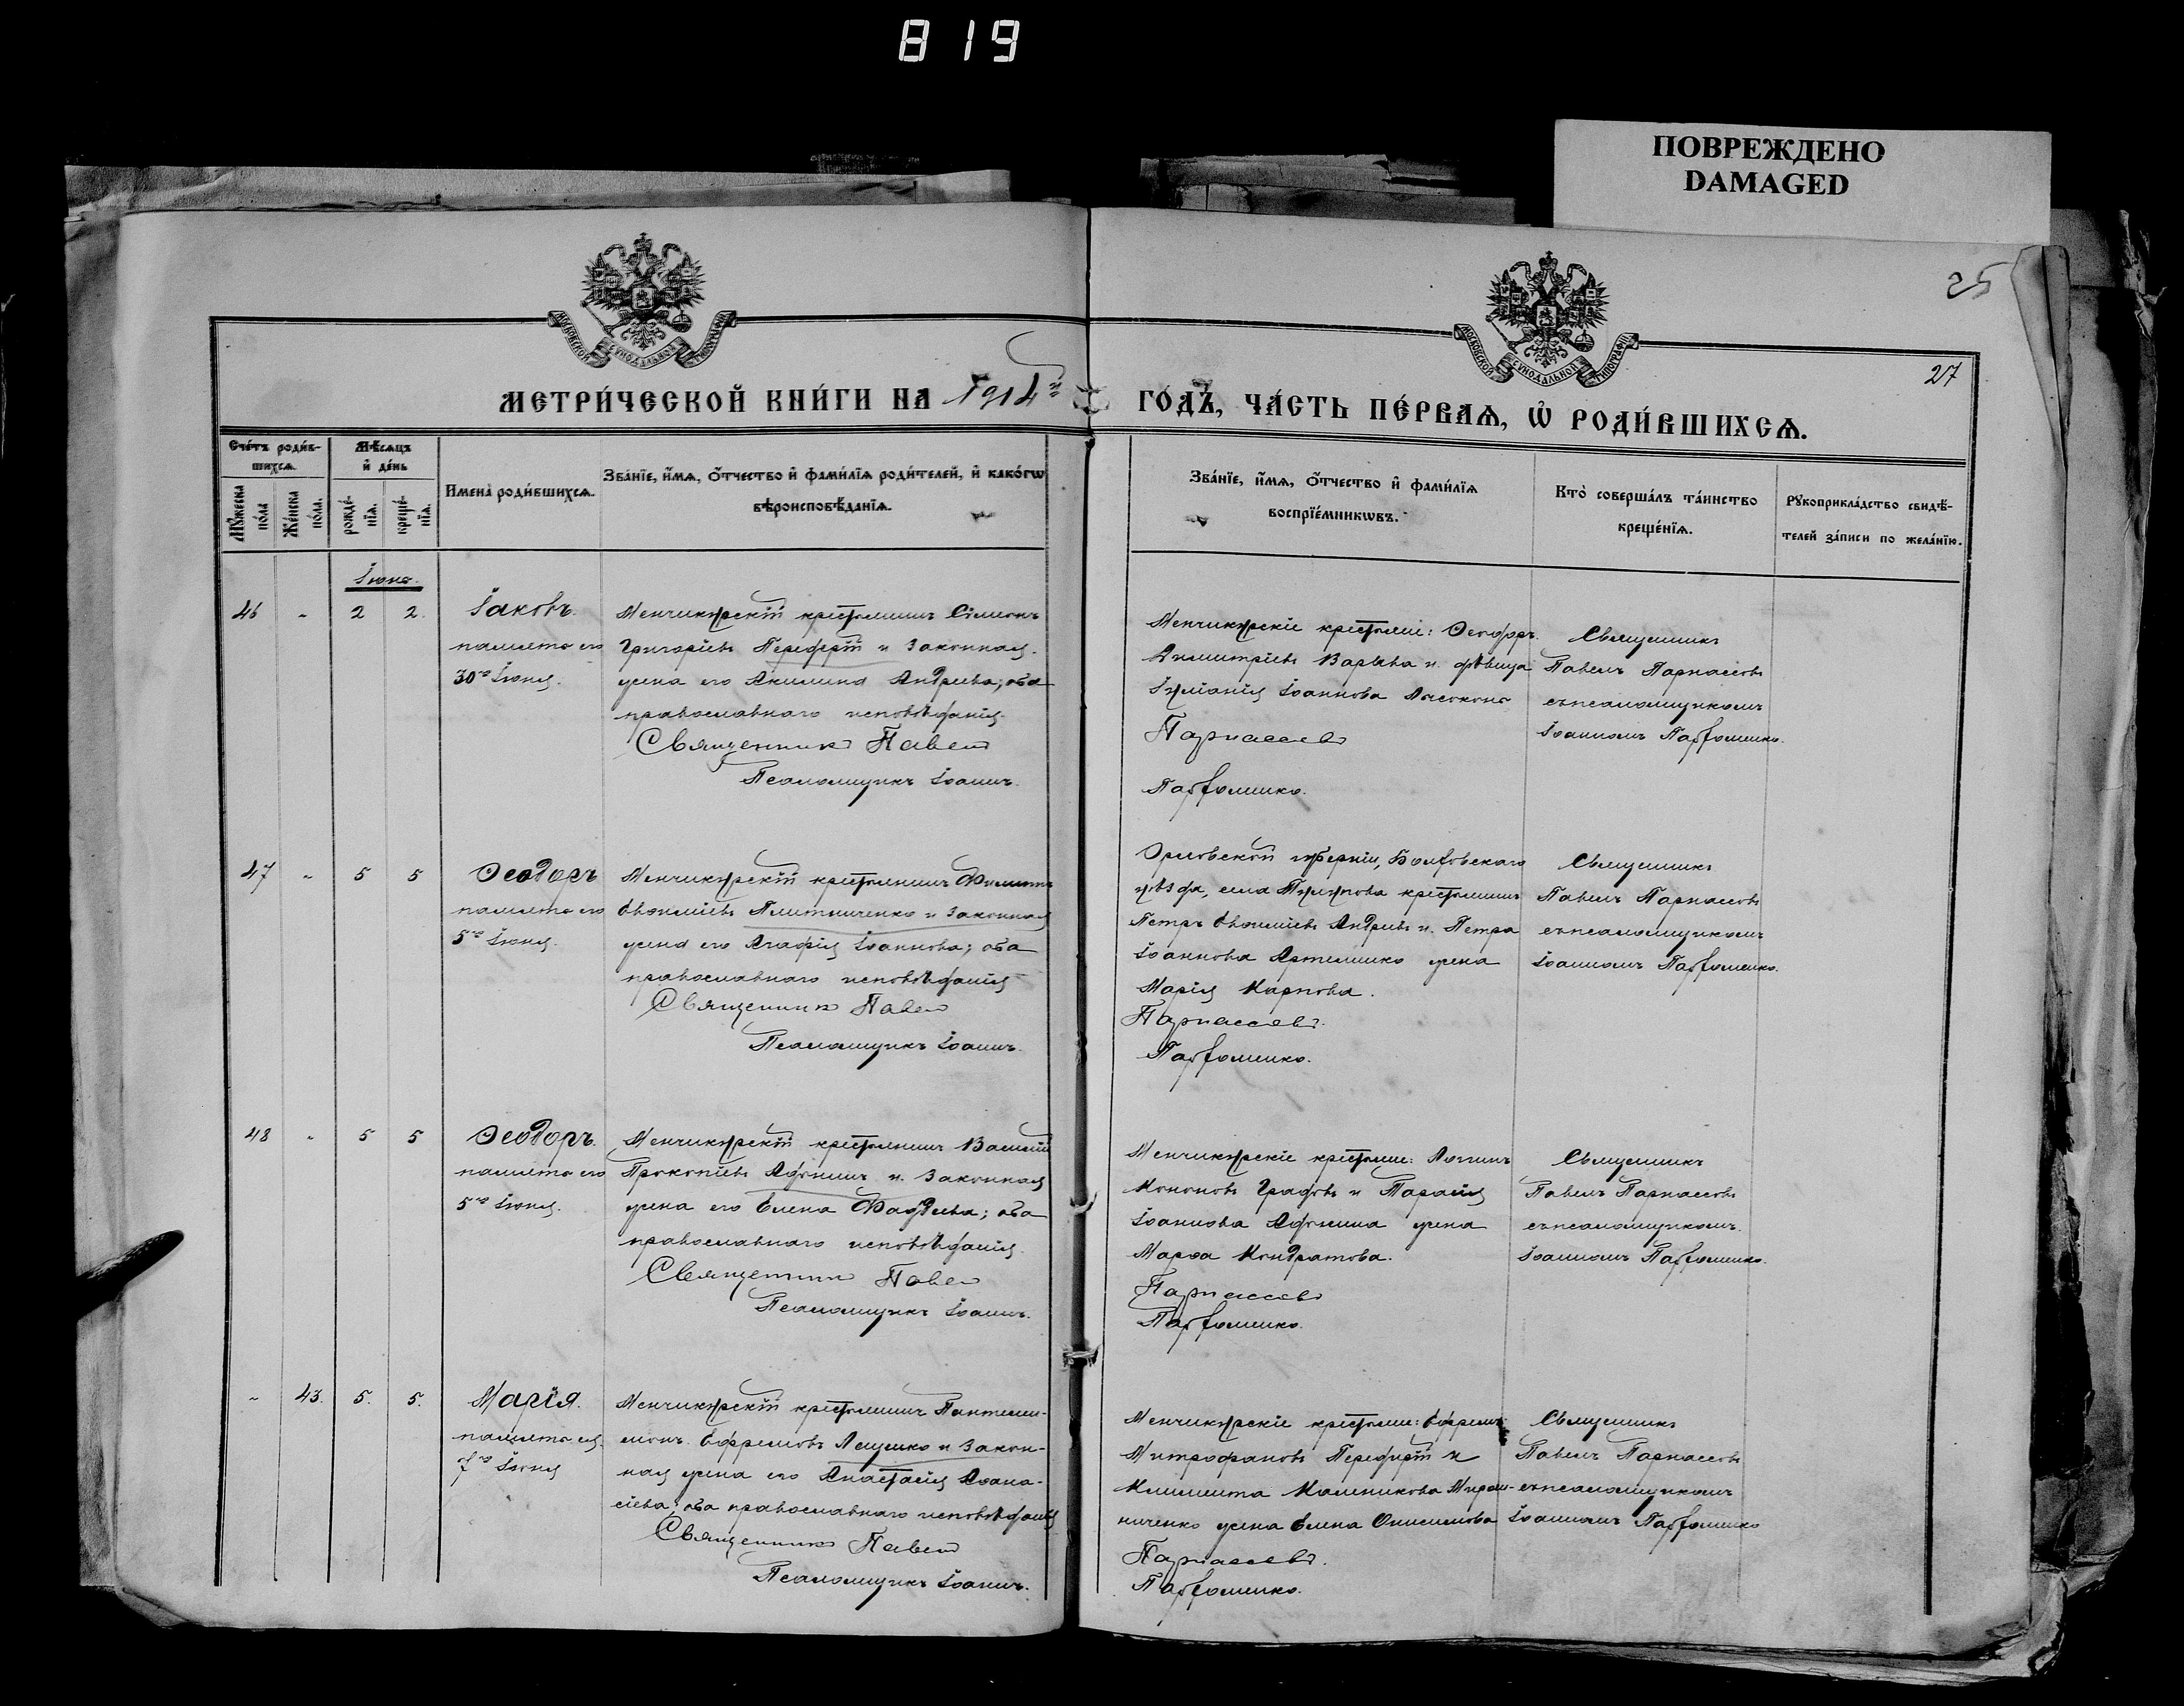 819
ПОВРЕЖДЕНО
DAMAGED
25
27
МОСКОВСКОЙ СѴНОДАЛЬНОЙ ТИПОГРАФІИ
МОСКОВСКОЙ СѴНОДАЛЬНОЙ ТИПОГРАФІИ
МЕТРИ́ЧЕСКОЙ КНИ́ГИ НА 1914й ГО́ДЪ, ЧА́СТЬ ПЕ́РВАѦ, Ѡ҆ РОДИ́ВШИХСѦ.
Сче́тъ роди́в-
шихсѧ.
Мѣ́сѧцъ
и҆ де́нь
Мꙋ́жеска по́ла
Же́нска по́ла.
рожде́-нїѧ.
креще́-нїѧ.
Имена̀ роди́вшихсѧ.
Зва́нїе, и҆́мѧ, о҆́тчество и҆ фами́лїѧ роди́телей, и҆ како́гѡ
вѣроисповѣ́данїѧ.
Зва́нїе, и҆́мѧ, о҆́тчество и҆ фами́лїѧ
воспрїе́мникѡвъ.
Кто̀ соверша́лъ та́инство
креще́нїѧ.
Рꙋкоприкла́дство свидѣ́-
телей за́писи по жела́нїю.
Іюнь.
46 " 2 2. Іаковъ.
память его
30го Іюня.
Менчикурскій крестьянинъ Симеонъ
Григоріевъ Переферт и законная
жена его Акилина Андреева; оба
православнаго исповѣданія.
Священникъ Павел
Псаломщикъ Іоаннъ.
Менчикурскіе крестьяне: Ѳеодоръ
Димитріевъ Варава и дѣвица
Іуліанія Іоаннова
Парнассовъ
Парфоменко.
Священникъ
Павелъ Парнассовъ
съ псаломщикомъ
Іоанномъ Парфоменко.
47 " 5 5 Ѳеодоръ
память его
5го Іюня.
Менчикурскій крестьянинъ Филиппъ
Евѳиміевъ Плитниченко и законная
жена его Агафія Іоаннова; оба
православнаго исповѣданія
Священникъ Павел
Псаломщикъ Іоаннъ.
Орловской губерніи, Болховскаго
уѣзда, села крестьянинъ
Петръ Евѳиміевъ Андреевъ и Петра
Іоаннова Артеменко жена
Марія Карпова.
Парнассовъ.
Парфоменко.
Священникъ
Павелъ Парнассовъ
съ псаломщикомъ
Іоанномъ Парфоменко.
48 " 5 5 Ѳеодоръ.
память его
5го Іюня.
Менчикурскій крестьянинъ Василій
Прокопіевъ Афонинъ и законная
жена его Елена Фаддеева; оба
православнаго исповѣданія.
Священникъ Павел
Псаломщикъ Іоаннъ.
Менчикурскіе крестьяне: Логгинъ
Кононовъ Градовъ и Тарасія
Іоаннова Афонина жена
Марѳа Кондратова.
Парнассовъ
Парфоменко.
Священникъ
Павелъ Парнассовъ
съ псаломщикомъ
Іоанномъ Парфоменко.
" 43. 5. 5. Марія.
память ея
7го Іюня
Менчикурскій крестьянинъ Пантелеи-
монъ Ефремовъ Лещенко и закон-
ная жена его Анастасія Аѳана-
сіева; оба православнаго исповѣданія
Священникъ Павел
Псаломщикъ Іоаннъ.
Менчикурскіе крестьяне: Ефремъ
Митрофановъ Переферт и
Климента Калиникова Мирош-
ниченко жена Елена Онисимова
Парнассовъ.
Парфоменко.
Священникъ
Павелъ Парнассовъ
съ псаломщикомъ
Іоанномъ Парфоменко